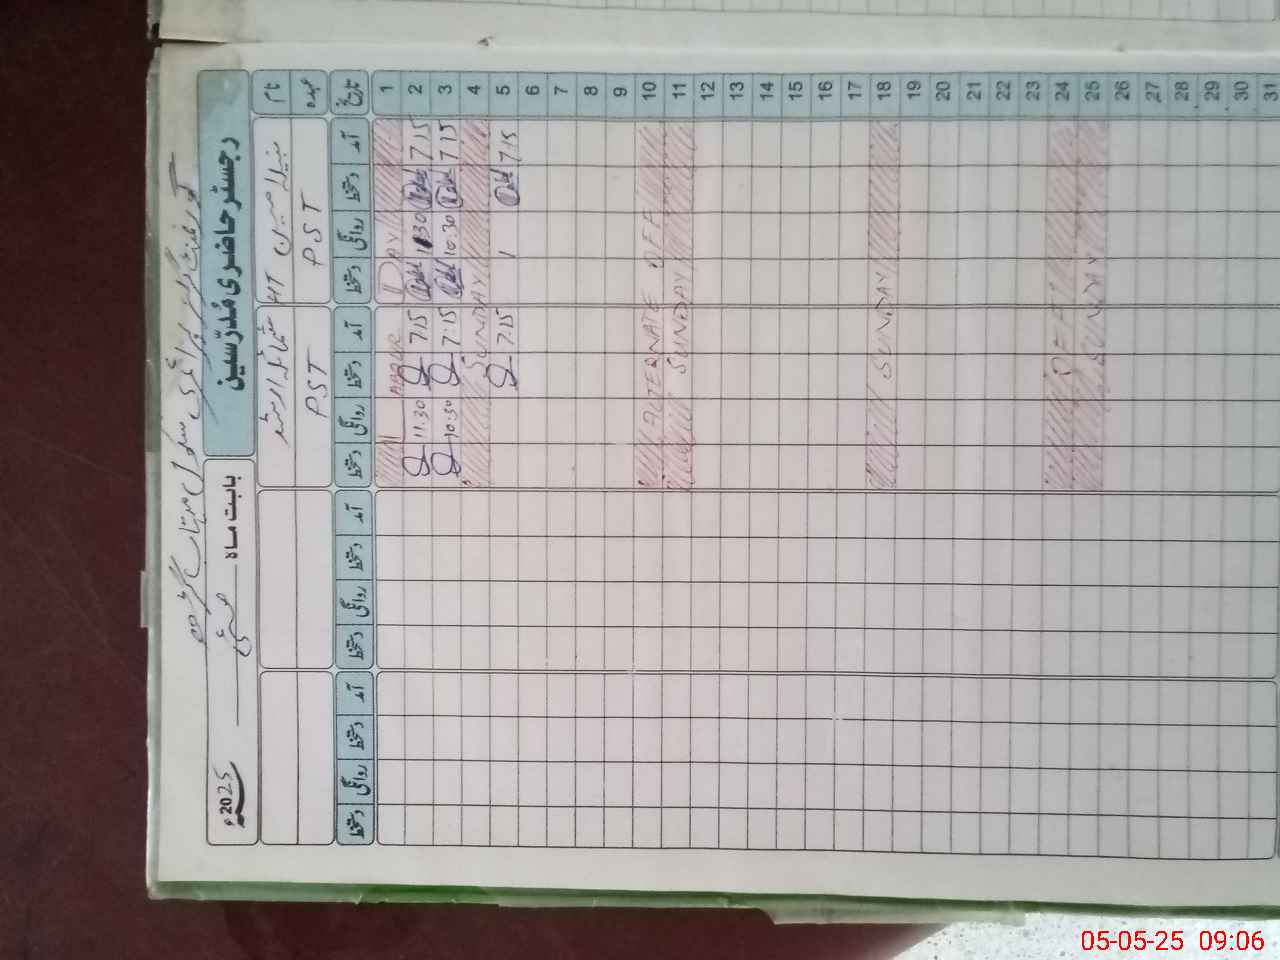 رجسٹر حاضری مُدرّسین
بابت ماہ مئی 2025ء
نام
عہدہ PST PST
تاریخ آمد دستخط روانگی دستخط آمد دستخط روانگی دستخط آمد دستخط روانگی دستخط آمد دستخط روانگی دستخط
1 LABOUR DAY
2 7.15 11.30 7.15 11.30
3 7.15 10.30 7.15 10.30
4 SUNDAY
5 7.15 7.15
6
7
8
9
10 ALTERNATE OFF
11 SUNDAY
12
13
14
15
16
17
18 SUNDAY
19
20
21
22
23
24 OFF
25 SUNDAY
26
27
28
29
30
31
05-05-25 09:06